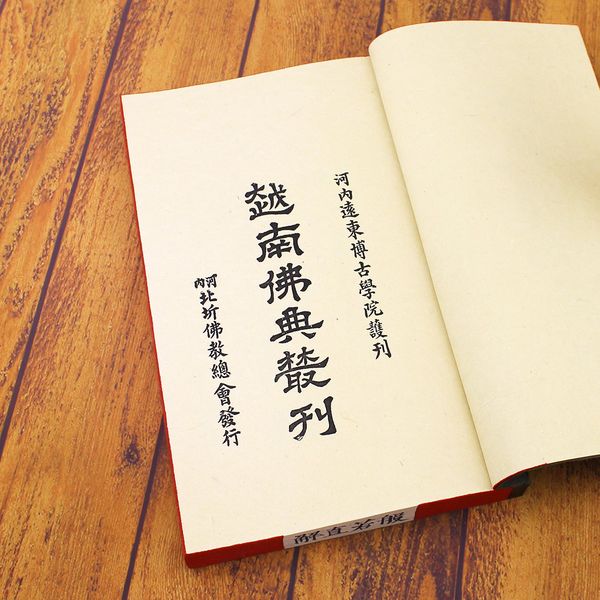 河內遠東博古學院護刊
越南佛典叢刊
河內北圻佛教總會發行
般若直解